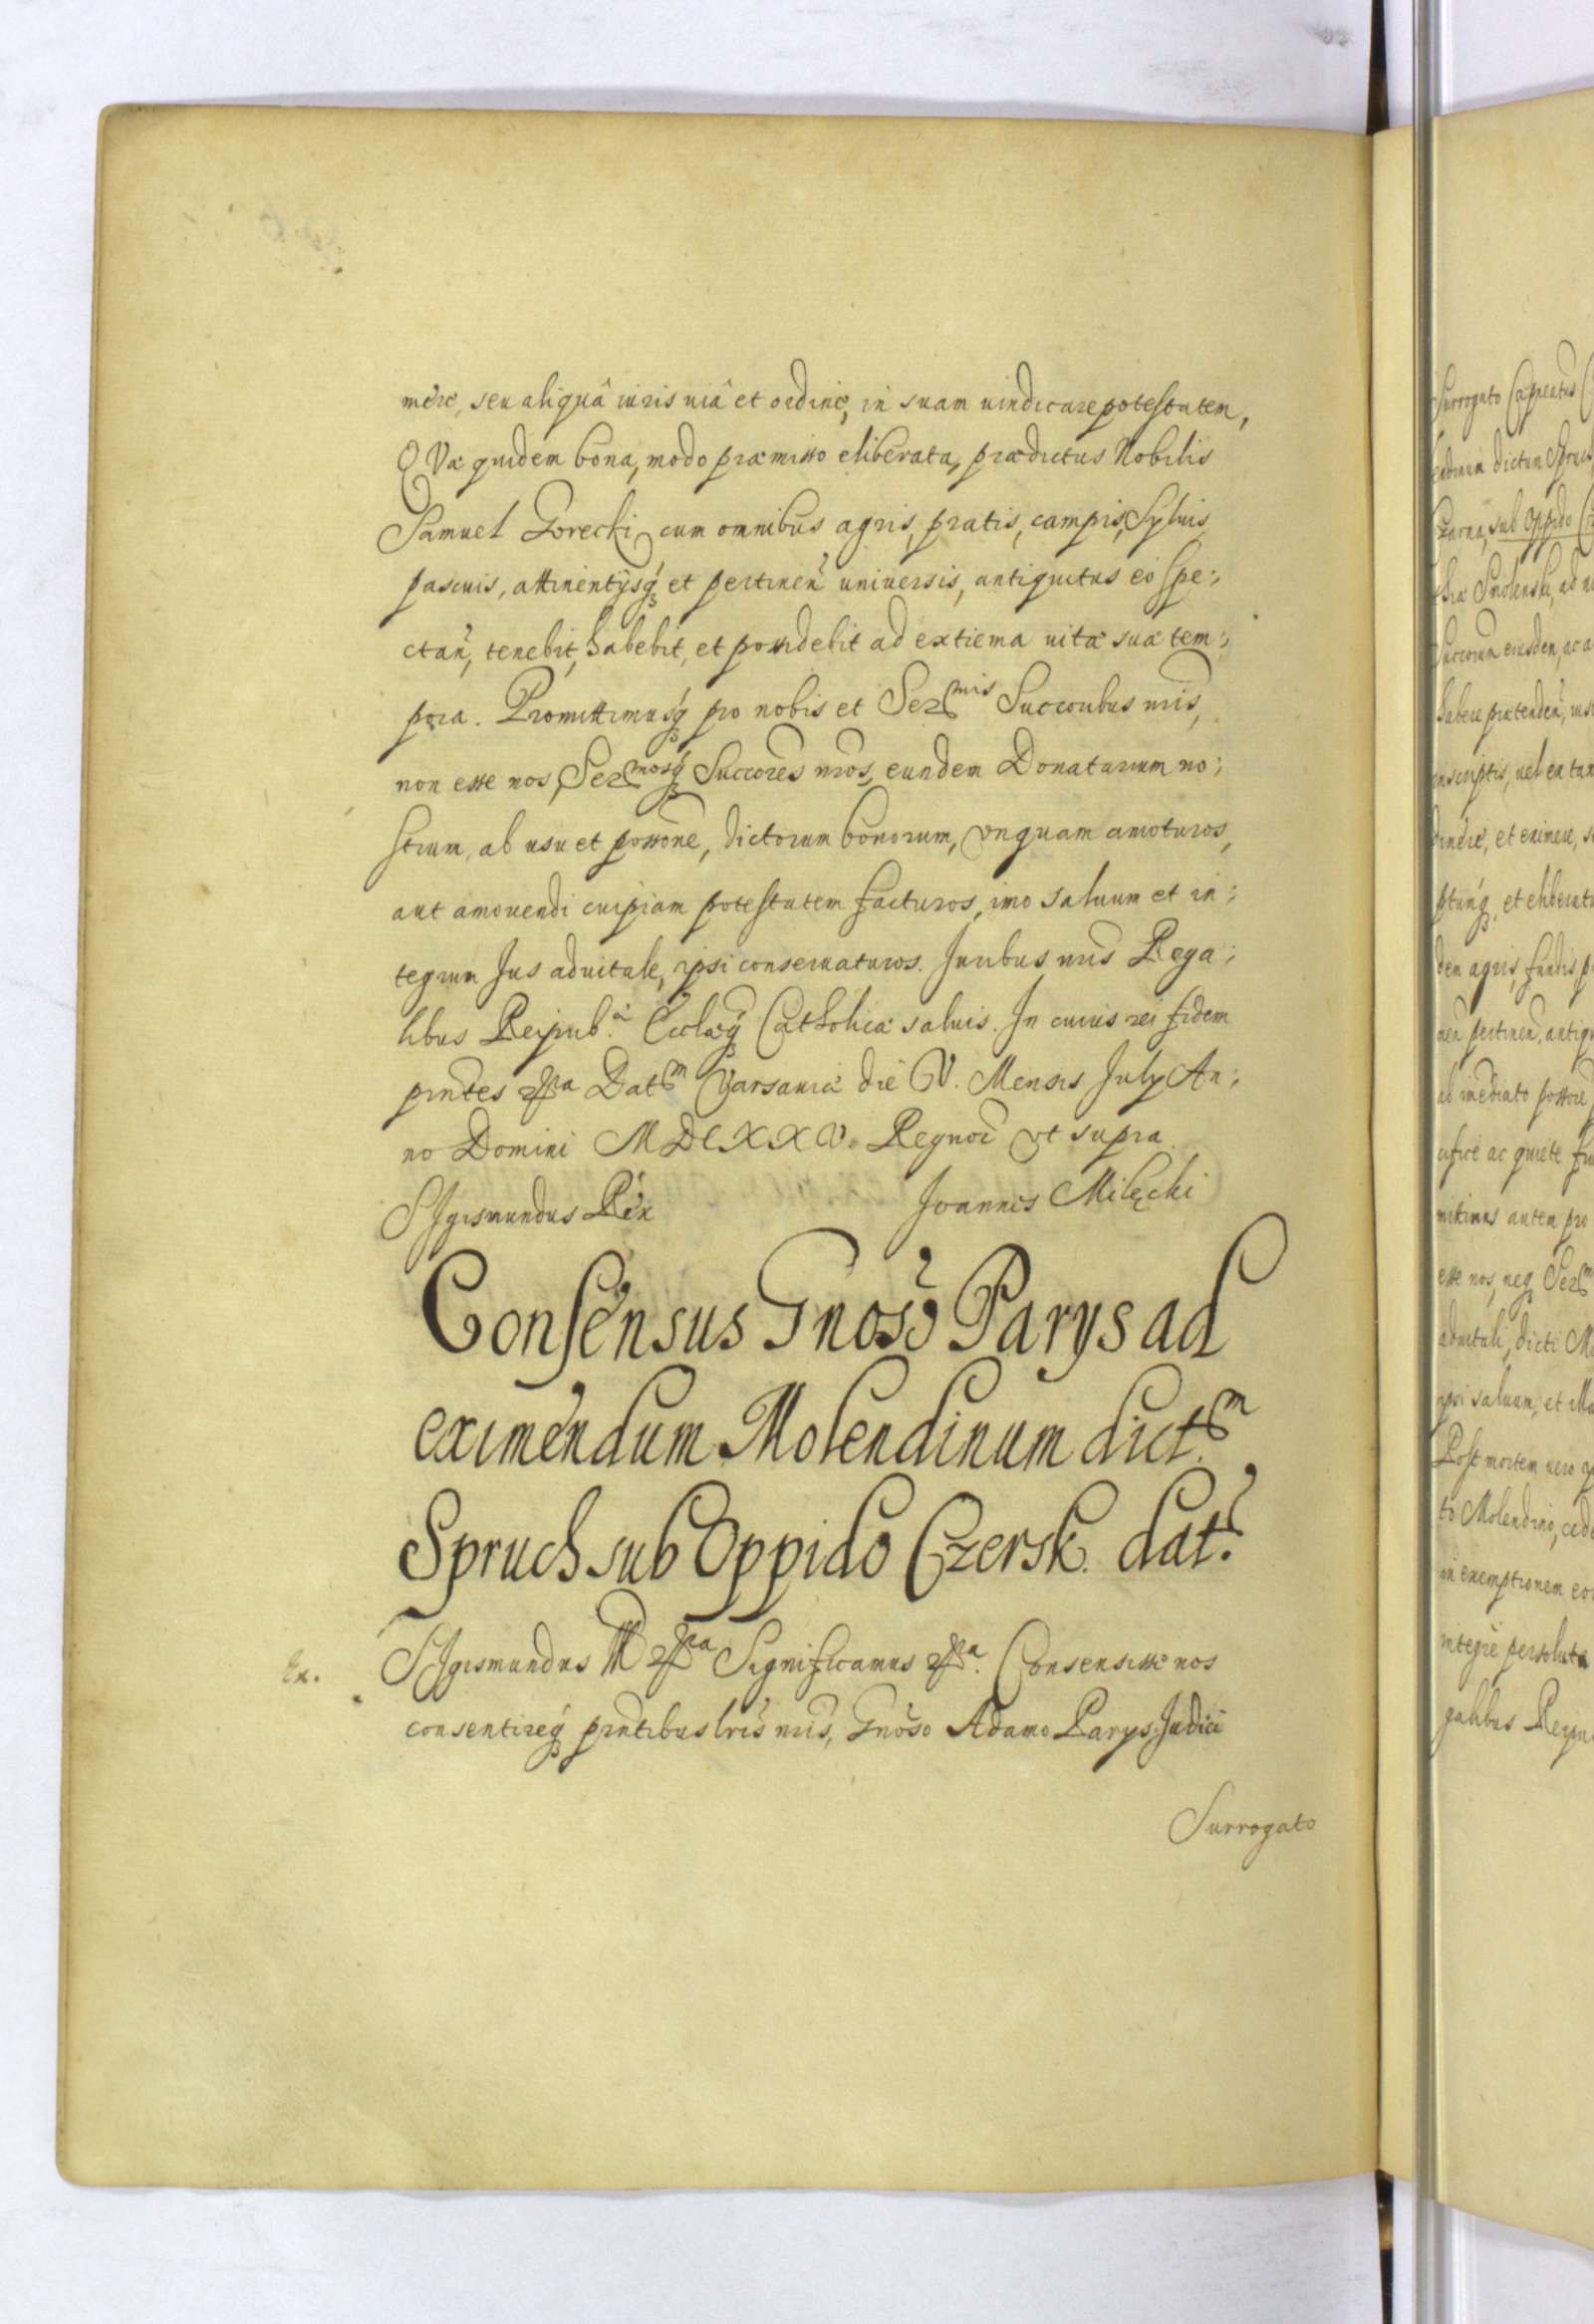 mere, seu aliquâ iuris uiâ et ordine, in suam uindicare potestatem,
QVæ quidem bona, modo præmisso eliberata, prædictus Nobilis
Samuel Gorecki cum omnibus agris, pratis, campis, Syluis,
pascuis, attinentijsq; et pertineñ uniuersis, antiquitus eo spe:,
ctañ, tenebit, habebit, et possidebit ad extrema uitæ suæ tem:,
pora. Promittimusq; pro nobis et Ser^mis Succoribus nris,
non esse nos, Ser^mosq; Succores nros, eundem Donatarium no:,
strum, ab usu et possone, dictorum bonorum, vnquam amoturos,
aut amouendi cuipiam potestatem facturos, imo saluum et in:,
tegrum Jus aduitale, ipsi conseruaturos. Juribus nris Rega:,
libus Reipub.æ Ecclæq; Catholicæ saluis. In cuius rei fidem
pntes &a Dat^m Varsauiæ die V. Mensis July An:,
no Domini MDCXXV. Regnor vt supra.
SIgismundus Rex
Joannes Milęcki
Consensus Gnoso Parys ad
eximendum Molendinum dict.^m
Spruch sub Oppido Czersk. dat.
Ex. SIgismundus III &a Significamus &a. Consensisse nos
consentireq; pntibus lris nris, Gnoso Adamo Parys Judici
Surrogato
Surrogato
dictum
sub Oppido
Smolenski,
eiusdem, ac
habere prætendeñ,
vel ex
et eximere,
et eliberatu
agris, fundis
pertineñ, antiqu
ac quiete
autem pro
esse nos, neq; Ser^m
dicti
ipsi saluum, et
Post mortem uero
Molendino,
in exemptionem
integre persoluta